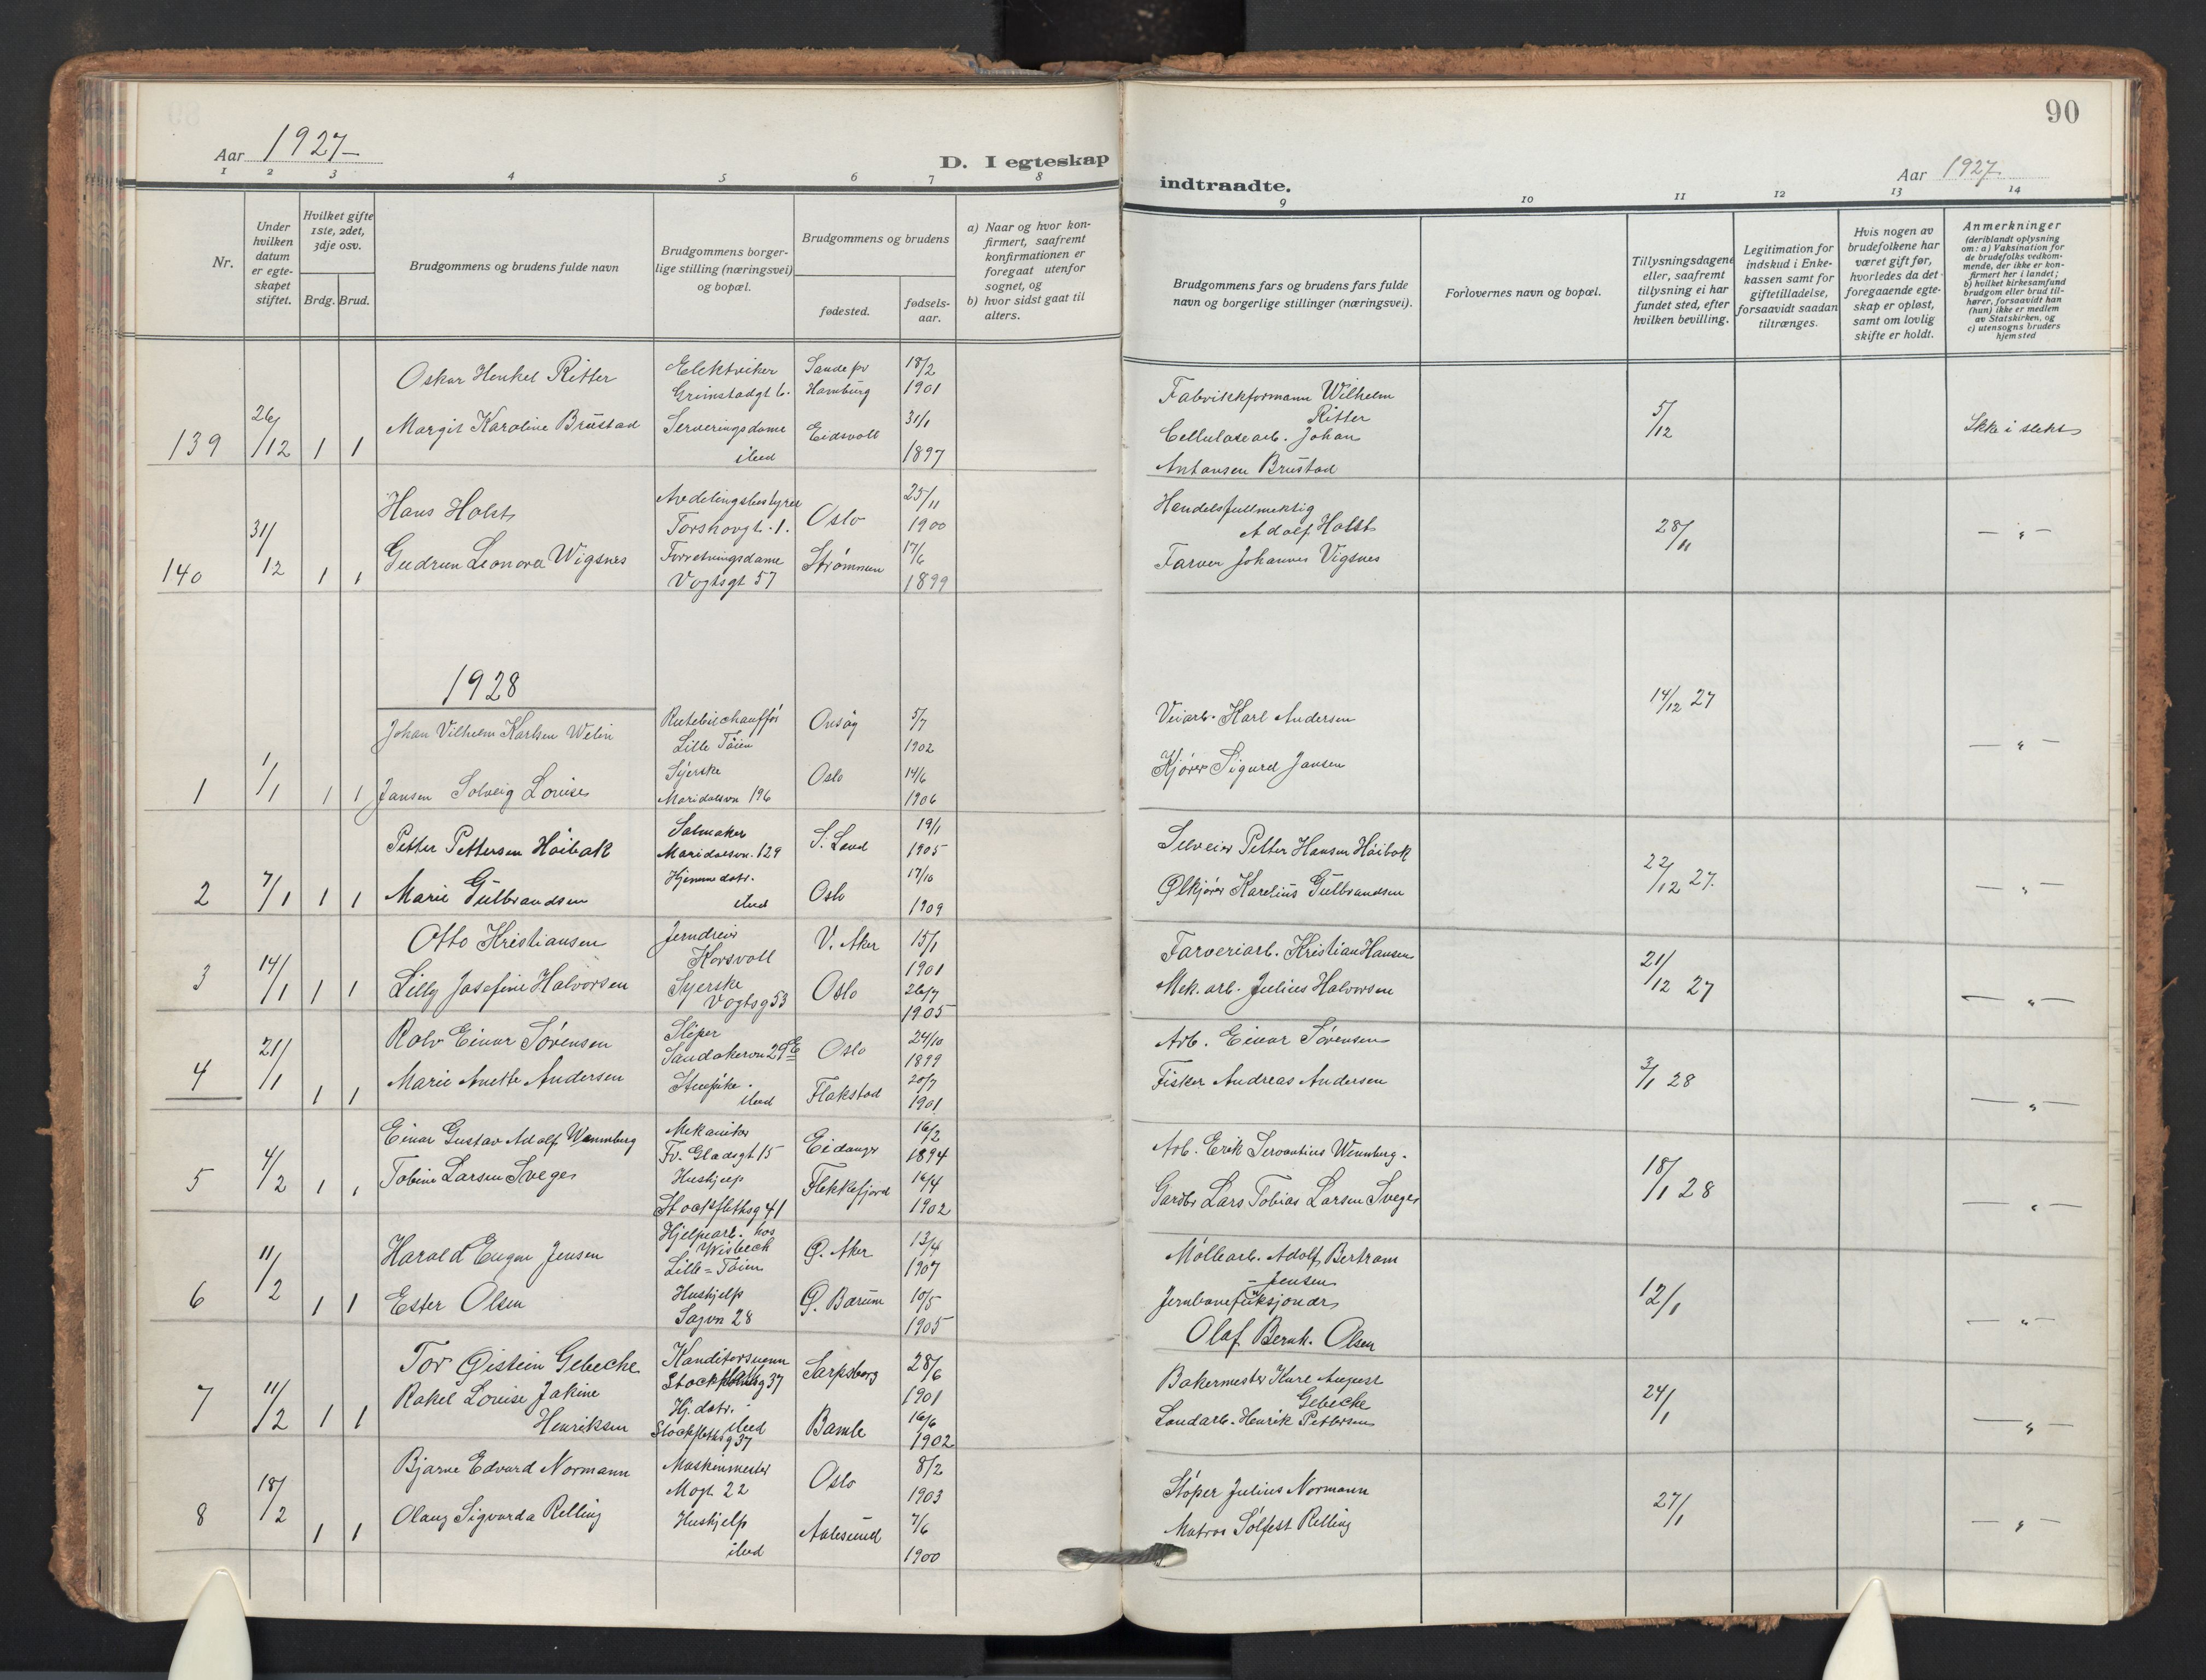 90
Aar 1927
D. I egteskap
indtraadte.
Aar 1927
1 2 3 4 5 6 7 8
9 10 11 12 13 14
Nr.
Under hvilken datum er egteskapet stiftet.
Hvilket gifte 1ste, 2det, 3dje osv.
Brdg. Brud.
Brudgommens og brudens fulde navn
Brudgommens borgerlige stilling (næringsvei) og bopæl.
Brudgommens og brudens
fødested.
fødselsaar.
a) Naar og hvor konfirmert, saafremt konfirmationen er foregaat utenfor sognet, og
b) hvor sidst gaat til alters.
Brudgommens fars og brudens fars fulde navn og borgerlige stillinger (næringsvei).
Forlovernes navn og bopæl.
Tillysningsdagene eller, saafremt tillysning ei har fundet sted, efter hvilken bevilling.
Legitimation for indskud i Enkekassen samt for giftetilladelse, forsaavidt saadan tiltrænges.
Hvis nogen av brudefolkene har været gift før, hvorledes da det foregaaende egteskap er opløst, samt om lovlig skifte er holdt.
Anmerkninger
(deriblandt oplysning om: a) Vaksination for de brudefolks vedkommende, der ikke er konfirmert her i landet; b) hvilket kirkesamfund brudgom eller brud tilhører, forsaavidt han (hun) ikke er medlem av Statskirken, og c) utensogns bruders hjemsted
Oskar Henkel Ritter Elektriker Sande pr 18/2
Grimstadgt 6. Hamburg 1901
139 26/12 1 1 Margit Karoline Brustad Serveringsdame Eidsvoll 31/1
ibid 1897
Fabrikkformann Wilhelm
Ritter
Cellulosearb. Johan
Antonsen Brustad
5/12
Ikke i slekt
Hans Holst Avdelingsbestyrer Oslo 25/11
Torshovgt. 1. 1900
140 31/12 1 1 Gudrun Leonora Wigsnes Forretningsdame Strømmen 17/6
Vogtsgt 57 1899
Handelsfullmektig
Adolf Holst
Farver Johannes Vigsnes
28/11
— " —
1928
Johan Vilhelm Karlsen Welin Rutebilchauffør Onsøy 5/7
Lille Tøien 1902
1 1/1 1 1 Jansen Solveig Louise Syerske Oslo 14/6
Maridalsvn 196 1906
Veiarb. Karl Andersen
Kjører Sigurd Jansen
14/12 27
— " —
Petter Pettersen Høibak Salmaker S. Land 19/1
Maridalsvn. 129 1905
2 7/1 1 1 Marie Gulbrandsen Hjemmedatr. Oslo 17/10
ibid 1909
Selveier Petter Hansen Høibak
Ølkjører Karelius Gulbrandsen
22/12 27.
— " —
Otto Kristiansen Jerndreier V. Aker 15/1
Korsvoll 1901
3 14/1 1 1 Lilly Josefine Halvorsen Syerske Oslo 26/7
Vogtsg 53 1905
Farveriarb. Kristian Hansen
Mek. arb. Julius Halvorsen
21/12 27
— " —
Rolv Einar Sørensen Sliper Oslo 24/10
Sandakervn 29 E 1899
4 21/1 1 1 Marie Anette Andersen Stuepike. Flakstad 20/7
ibid 1901
Arb. Einar Sørensen
Fisker Andreas Andersen
3/1 28
— " —
Einar Gustav Adolf Wennberg Mekaniker Eidanger 16/2
Fr. Gladsgt 15 1894
5 4/2 1 1 Tobine Larsen Sveges Hushjelp Flekkefjord 16/4
Stockflethsg 41 1902
Arb. Erik Servantius Wennberg.
Gardbr Lars Tobias Larsen Sveges
18/1 28
— " —
Harald Eugen Jensen Hjelpearb. hos Ø. Aker 13/4
Wisbech
Lille-Tøien 1907
6 11/2 1 1 Ester Olsen Hushjelp Ø. Bærum 10/5
Sagvn 28 1905
Møllearb. Adolf Bertram
- Jensen
Jernbanefunksjonær
Olaf Bernh. Olsen
12/1
— " —
Tor Øistein Gebecke Konditorsvenn Sarpsborg 28/6
Stockflethsg 37 1901
7 11/2 1 1 Rakel Louise Jakine Hj. datr. Bamle 16/6
Henriksen ibid
Stockflethsg 37 1902
Bakermester Karl August
Gebecke
Landarb. Henrik Pettersen
24/1
— " —
Bjarne Edvard Normann Maskinmester Oslo 8/2
Mogt 22 1903
8 18/2 1 1 Olaug Sigvarda Relling Hushjelp Aalesund 7/6
ibid 1900
Støper Julius Normann
Matros Solfest Relling
27/1
— " —